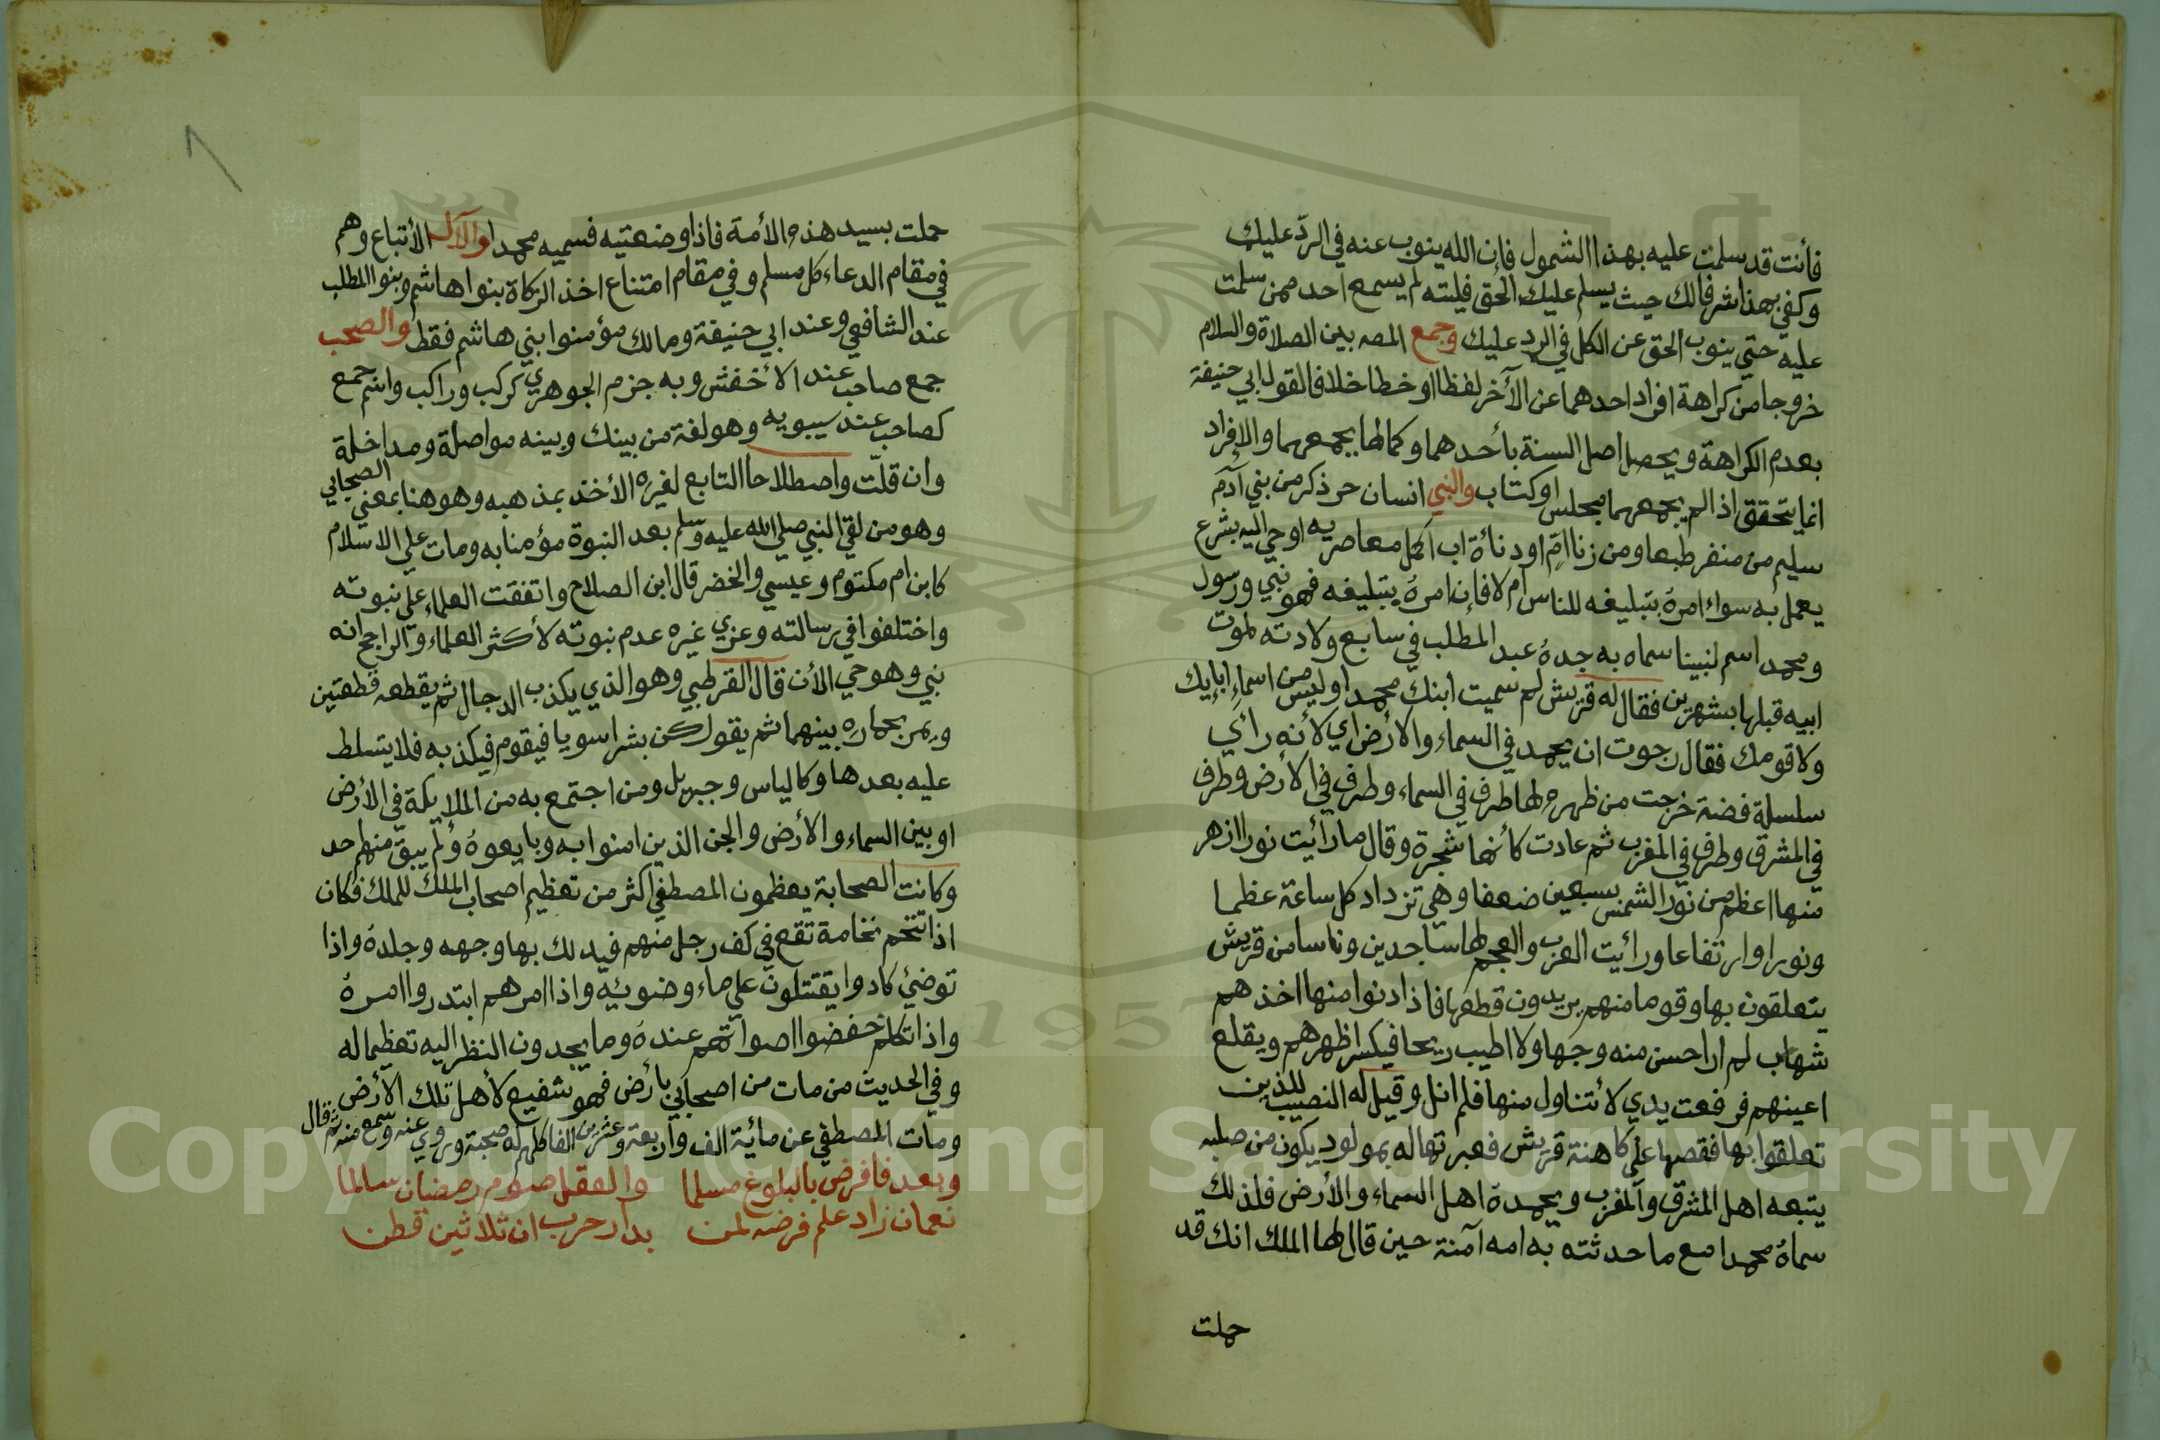 فأنت قد سلمت عليه بهذا الشمول فإن الله ينوب عنه في الردّ عليك
وكفي بهذا شرفا لك حيث يسلم عليك الحق فليته لم يسمع احد ممن سلمت
عليه حتي ينوب الحق عن الكل في الرد عليك وجمع المصہ بين الصلاة والسلام
خروجا من كراهة افراد احدهما عن الآخر لفظا او خطا خلافا لقول ابي حنيفة
بعدم الكراهة ويحصل اصل السنة بأحدهما وكمالها بجمعهما والافراد
انما يتحقق اذا لم يجمعهما مجلس او كتاب والنبي انسان حر ذكر من بني آدم
سليم من منفر طبعا ومن زنا امّ او دنأة اب اكمل معاصريه اوحي اليه بشرع
يعمل به سواء امرهُ بتبليغه للناس ام لا فإن امرهُ بتبليغه فهو نبي ورسول
ومحمد اسم لنبينا سماه به جدهُ عبد المطلب في سابع ولادته لموت
ابيه قبلها بشهرين فقال له قريش لم سميت ابنك محمدا وليس من اسماء ابايك
ولا قومك فقال رجوت ان يحمد في السماء والأرض اي لأنه رأي
سلسلة فضة خرجت من ظهره لها طرف في السماء وطرف في الأرض وطرف
في المشرق وطرف في المغرب ثم عادت كأنها شجرة وقال ما رأيت نورا ازهر
منها اعظم من نور الشمس سبعين ضعفا وهي تزداد كل ساعة عظما
ونورا وارتفاعا ورأيت العرب والعجم لها ساجدين وناسا من قريش
يتعلقون بها وقوما منهم يريدون قطعها فاذا دنوا منها اخذهم
شهاب لم ار احسن منه وجها ولا اطيب ريحا فيكسر اظهرهم ويقلع
اعينهم فرفعت يدي لأتناول منها فلم انل وقيل له النصيب للذين
تعلقوا بها فقصها علي كاهنة قريش فعبرتها له بمولود يكون من صلبه
يتبعه اهل المشرق والمغرب ويحمدهُ اهل السماء والأرض فلذلك
سماهُ محمدا مع ما حدثته به امه آمنة حين قال لها الملك انك قد
حملت
حملت بسيد هذه الأمة فاذا وضعتيه فسميه محمدا والآل الأتباع وهم
في مقام الدعاء كل مسلم وفي مقام امتناع اخذ الزكاة بنوا هاشم وبنوا المطلب
عند الشافعي وعند ابي حنيفة ومالك مؤمنوا بني هاشم فقط والصحب
جمع صاحب عند الأخفش وبه جزم الجوهري كركب وراكب واسم جمع
كصاحب عند سيبويه وهو لغة من بينك وبينه مواصلة ومداخلة
وان قلّت واصطلاحا التابع لغيره الأخذ بمذهبه وهو هنا بمعني الصحابي
وهو من لقي النبي صلي الله عليه وسلم بعد النبوة مؤمنا به ومات علي الاسلام
كابن ام مكتوم وعيسي والخضر قال ابن الصلاح واتفقت العلماء علي نبوته
واختلفوا في رسالته وعزي غيره عدم نبوته لأكثر العلماء والراجح انه
نبي وهو حي الأن قال القرطبي وهو الذي يكذب الدجال ثم يقطعه قطعتين
ويمر بحماره بينهما ثم يقول كن بشرا سويا فيقوم فيكذبه فلا يتسلط
عليه بعدها وكالياس وجبريل ومن اجتمع به من الملايكة في الأرض
او بين السماء والأرض والجن الذين امنوا به وبايعوهُ ولم يبق منهم احد
وكانت الصحابة يعظمون المصطفي اكثر من تعظيم اصحاب الملك للملك فكان
اذا تنخم نخامة تقع في كف رجل منهم فيدلك بها وجهه وجلدهُ واذا
توضئ كادوا يقتتلون علي ماء وضوئيه واذا امرهم ابتدروا امرهُ
واذا تكلم خفضوا اصواتهم عندهُ وما يجدون النظر اليه تعظيما له
وفي الحديث من مات من اصحابي بأرض فهو شفيع لأهل تلك الأرض
ومات المصطفي عن مائية الف وأربعة وعشرين الفا كلهم له صحبة وروي عنه وسمع منه ثم قال
وبعد فافرض بالبلوغ مسلما والعقل صوم رمضان سالما
نعمان زاد علم فرضه لمن بدار حرب ان ثلاثين قطن
Copyright © King Saud University
1957